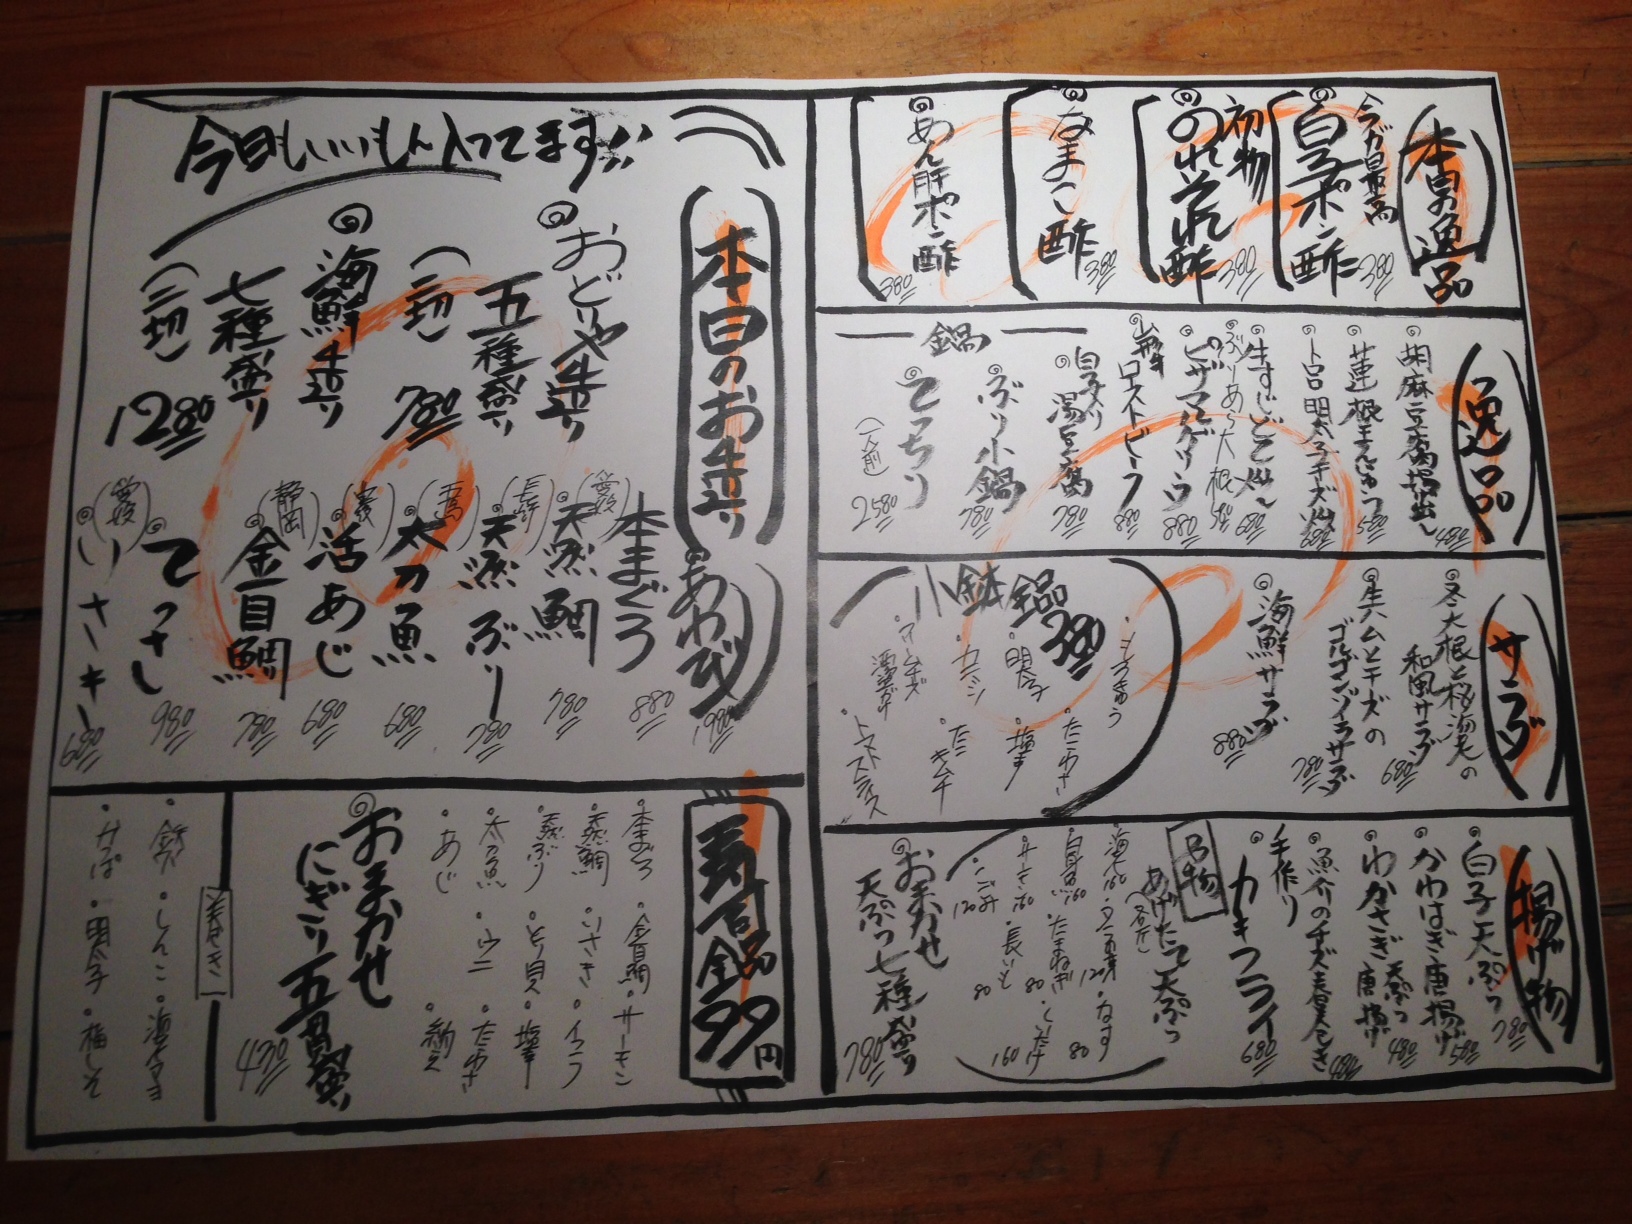 今日もいいもん入ってます!!
本日のお造り
おどりや造り
五種盛り
(二切)
780
海鮮造り
七種盛り
(二切)
1280
あわび
1980
本まぐろ
880
(愛媛)
天然鯛
780
(長崎)
天然ぶり
780
太刀魚
680
活あじ
680
(静岡)
金目鯛
780
てっさし
980
(愛媛)
いさき
680
寿司全品99円
本まぐろ
・金目鯛
・サーモン
・天然鯛
・いさき
・イクラ
・天然ぶり
・とり貝
・太刀魚
・ウニ
・たくわさ
・あじ
・納豆
おまかせ
にぎり五貫盛り
470
・鉄火
・しんこ
・海老マヨ
・かっぱ
・明太子
・梅しそ
本日の逸品
今が最高
白子ポン酢
380
初物
のれそれ酢
380
なまこ酢
380
あん肝ポン酢
380
逸品
胡麻豆腐揚出し
480
蓮根まんじゅう
580
トロロ明太子チーズ
680
ぶりあら大根
580
ピザマルゲリータ
880
ローストビーフ
880
鍋
白子入り
湯豆腐
780
ぶり小鍋
780
てっちり
(一人前)
2580
サラダ
冬大根と桜海老の
和風サラダ
680
生ハムとチーズの
ゴルゴンゾーラサラダ
780
海鮮サラダ
880
小鉢全品
380
・もろきゅう
・たこわさ
・明太子
・塩辛
・キムチ
・クリームチーズ
・トマトスライス
揚げ物
白子天ぷら
780
かわはぎ唐揚げ
580
わかさぎ
天ぷら
唐揚げ
480
魚介のチーズ春巻き
480
手作り
カキフライ
680
あげたて天ぷら
海老
160
白身魚
160
・たまねぎ
80
・なす
80
・長いも
80
160
おまかせ
天ぷら七種盛り
780